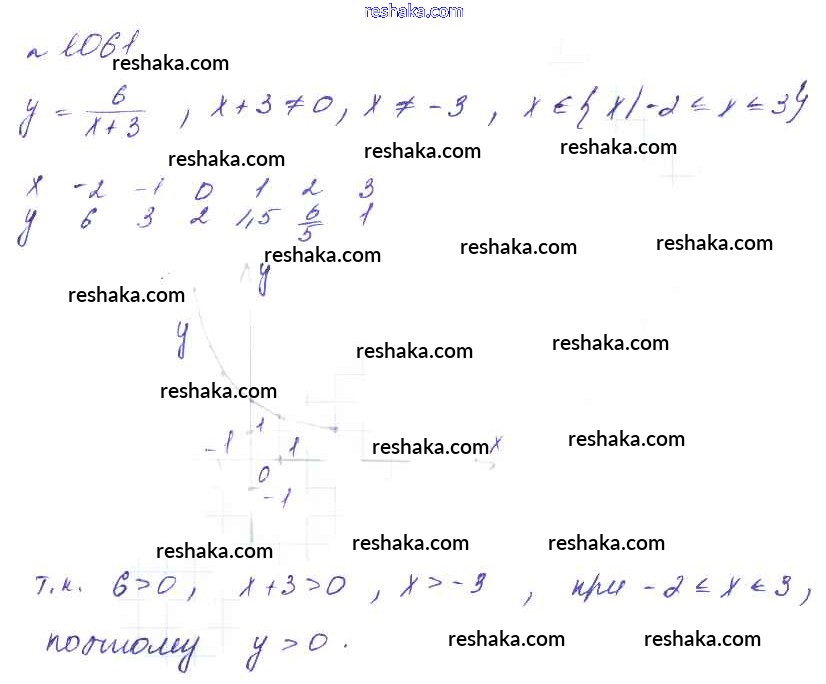 reshaka.com
№ 1061
reshaka.com
y = 6/(x+3) , x+3 ≠ 0, x ≠ -3 , x ∈ { x | -2 ≤ x ≤ 3 }
reshaka.com reshaka.com reshaka.com
x -2 -1 0 1 2 3
y 6 3 2 1,5 6/5 1
reshaka.com reshaka.com reshaka.com
y
reshaka.com
y
reshaka.com reshaka.com
reshaka.com
1
-1 1 reshaka.com x reshaka.com
0
-1
reshaka.com reshaka.com reshaka.com
т.к. 6>0, x+3>0 , x>-3 , при -2 ≤ x ≤ 3 ,
поэтому y>0 .
reshaka.com reshaka.com